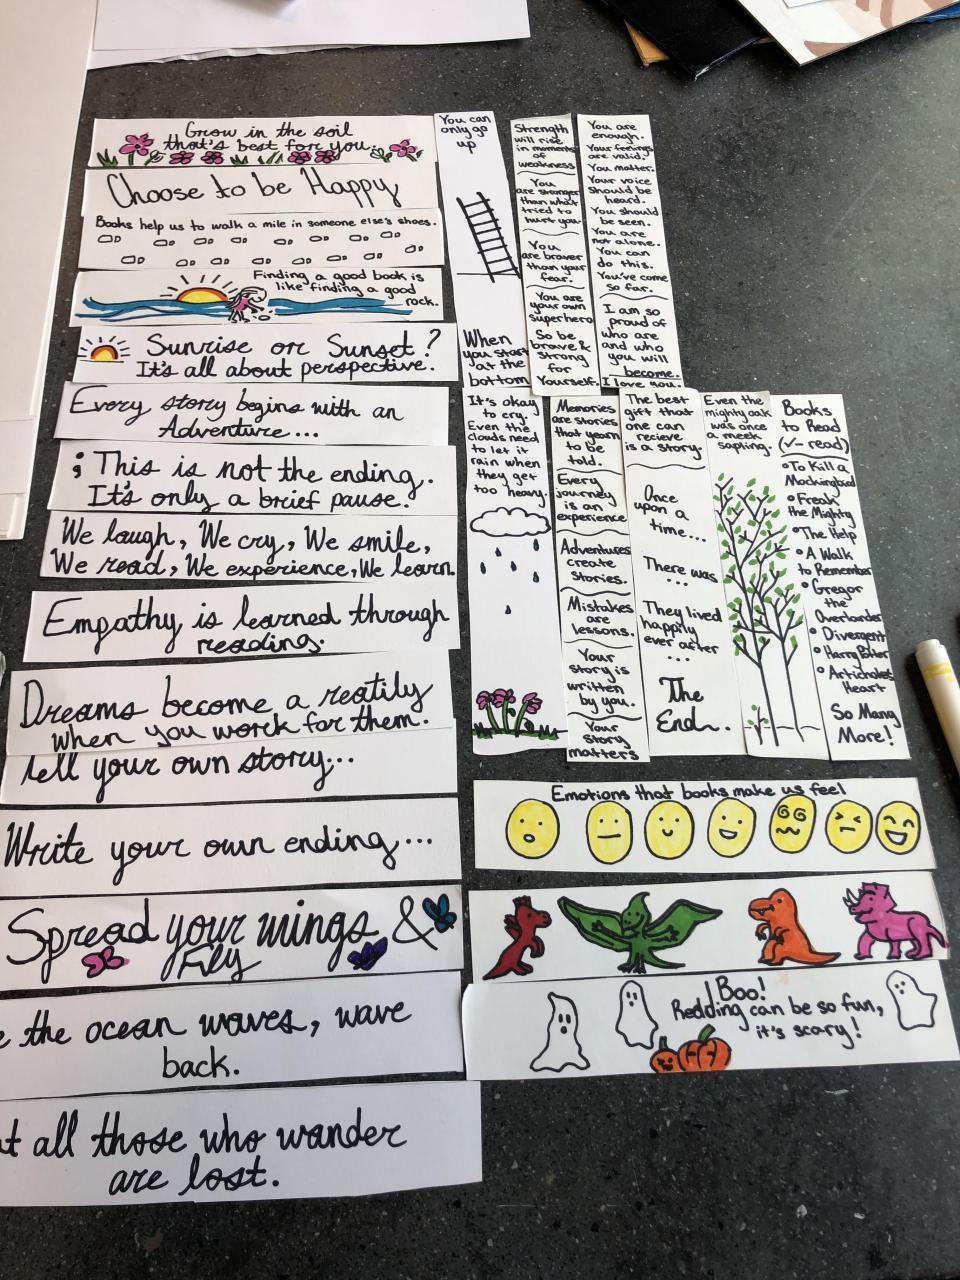 Grow in the soil
that's best for you.
Choose to be Happy
Books help us to walk a mile in someone else's shoes.
Finding a good book is
like finding a good
rock.
Sunrise or Sunset?
It's all about perspective.
Every story begins with an
Adventure...
; This is not the ending.
It's only a brief pause.
We laugh, We cry, We smile,
We read, We experience, We learn.
Empathy is learned through
reading.
Dreams become a reatily
when you work for them.
Tell your own story...
Write your own ending...
Spread your wings &
Fly
the ocean waves, wave
back.
all those who wander
are lost.
You can
only go
up
When
you start
at the
bottom
Strength
will rise
in moments
of
weakness
You
are stronger
than what
tried to
hurt you
You
are braver
than your
fear.
You are
your own
superhero
So be
brave &
strong
for
Yourself.
You are
enough.
Your feelings
are valid.
You matter.
Your voice
should be
heard.
You should
be seen.
You are
not alone.
You can
do this.
You've come
so far.
I am so
proud of
who are
and who
you will
become.
I love you.
It's okay
to cry.
Even the
clouds need
to let it
rain when
they get
too heavy.
Memories
are stories
that yearn
to be
told.
Every
journey
is an
experience
Adventures
create
Stories.
Mistakes
are
lessons.
Your
story is
written
by you.
Your
story
matters
The best
gift that
one can
recieve
is a story.
Once
upon a
time...
There was
...
They lived
happily
ever after
...
The
End.
Even the
mighty oak
was once
a meek
sapling.
Books
to Read
(✓- read)
To Kill a
Mockingbird
Freak
the Mighty
The Help
A Walk
to Remember
Gregor
the
Overlander
Divergent
Harry Potter
Artichoke's
Heart
So Many
More!
Emotions that books make us feel
Boo!
Redding can be so fun,
it's scary!